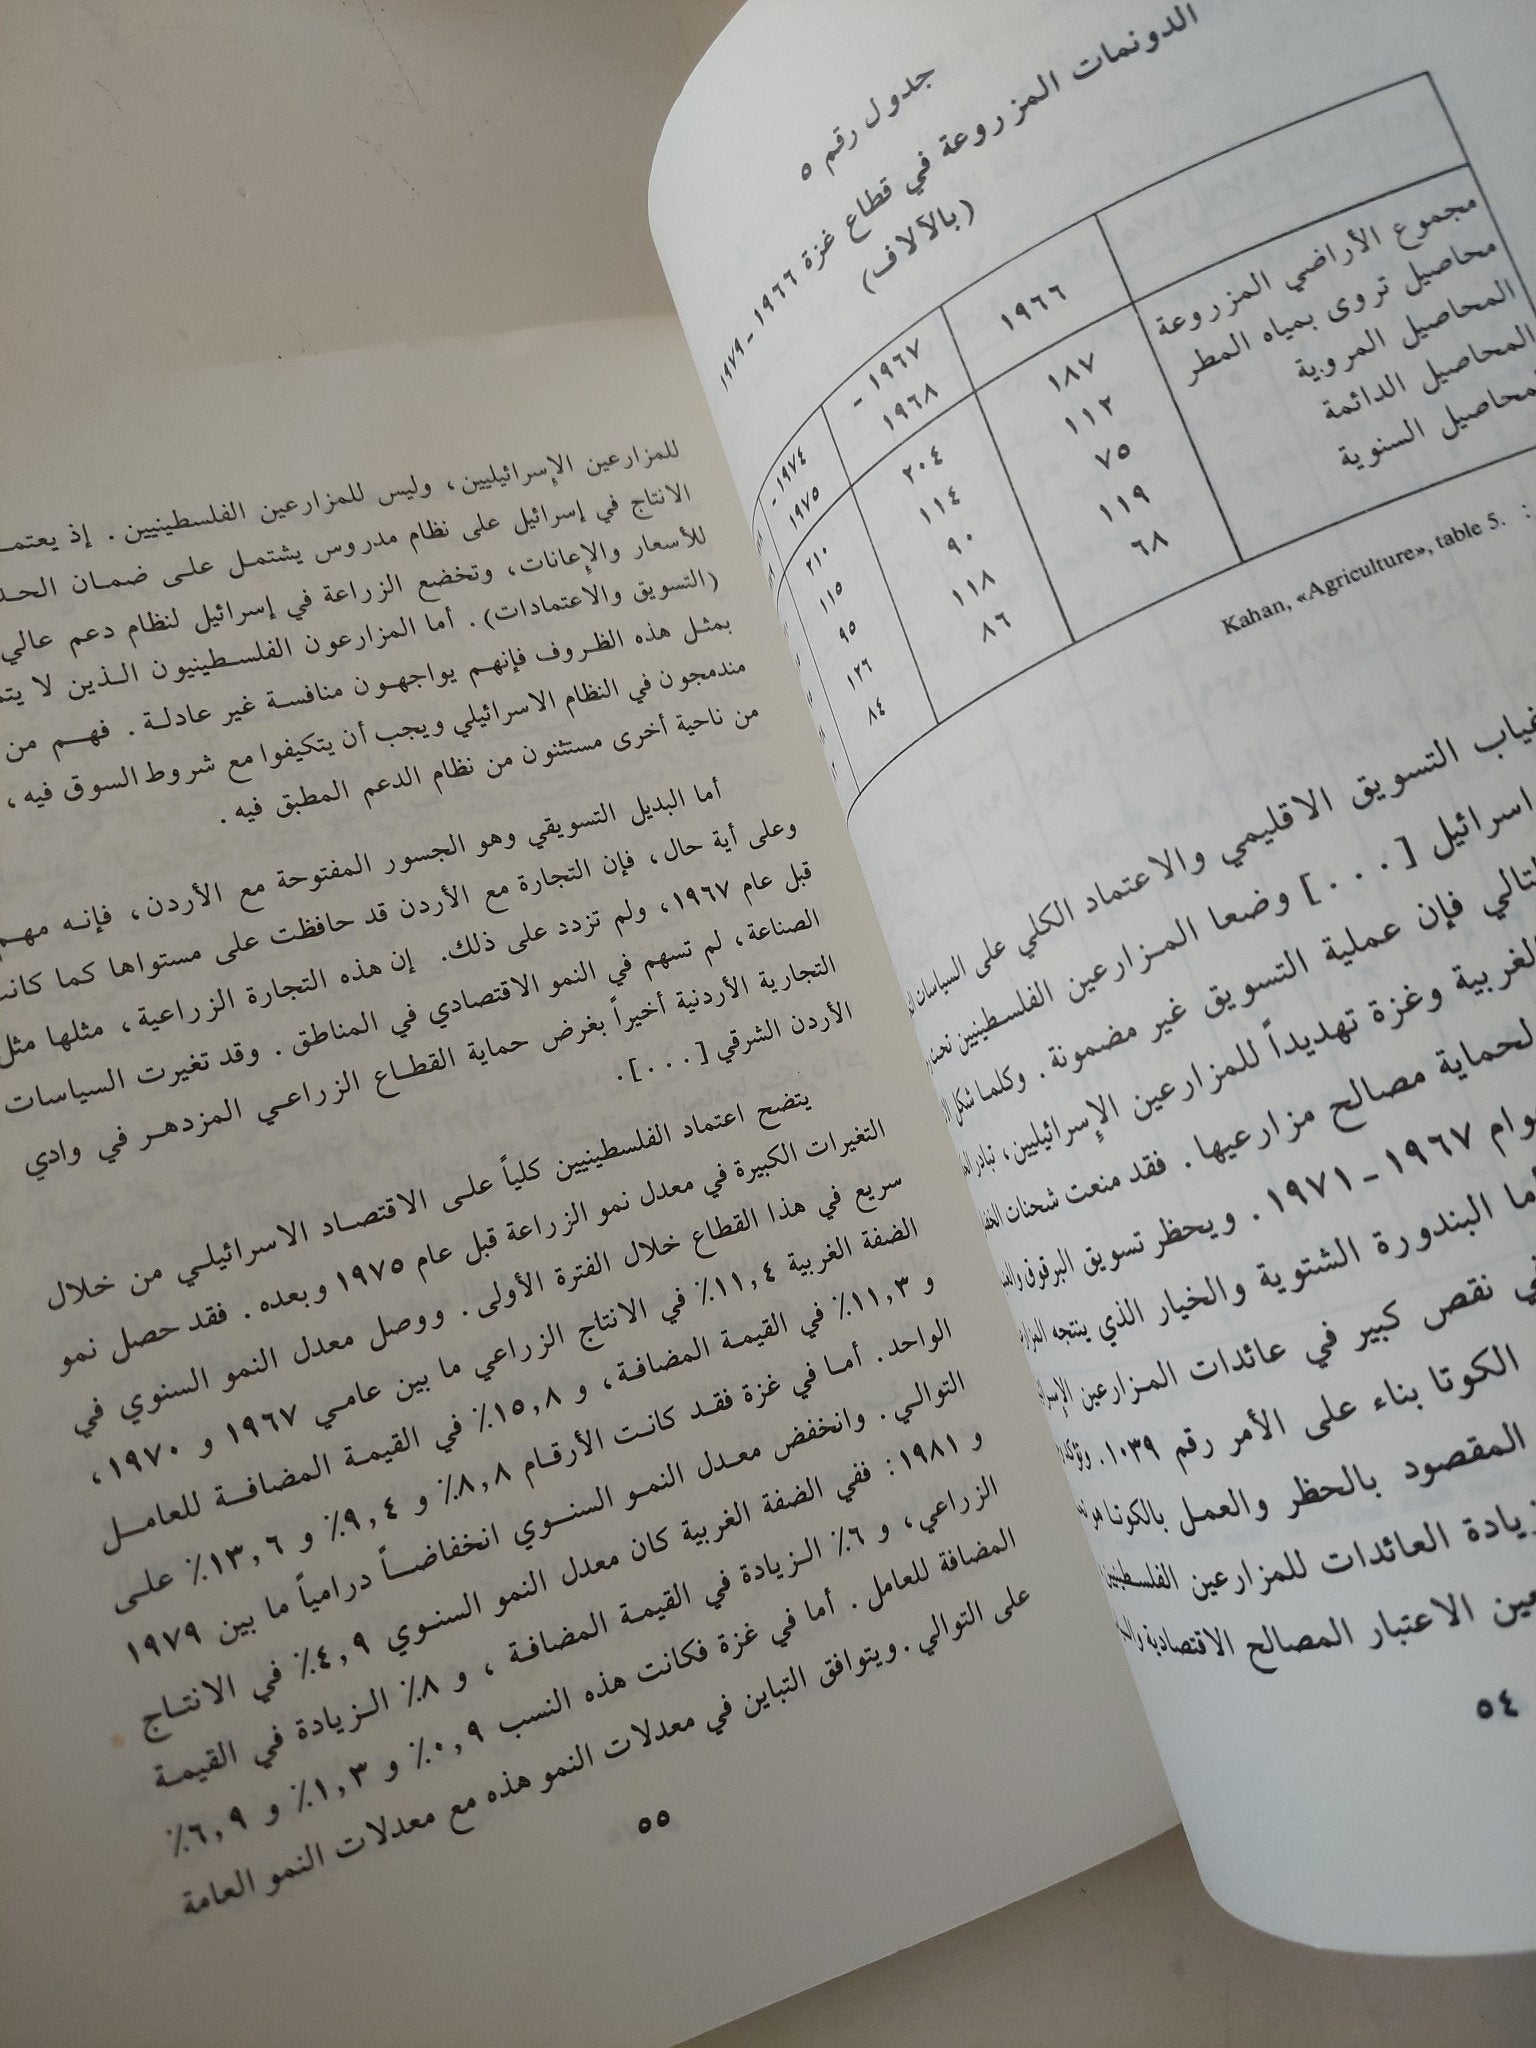 جدول رقم ٥
الدونمات المزروعة في قطاع غزة ١٩٦٦ - ١٩٧٩
(بالآلاف)
١٩٦٦ ١٩٦٧ - ١٩٦٨ ١٩٧٤ - ١٩٧٥
مجموع الأراضي المزروعة ١٨٧ ٢٠٤ ٢١٠
محاصيل تروى بمياه المطر ١١٢ ١١٤ ١١٥
المحاصيل المروية ٧٥ ٩٠ ٩٥
المحاصيل الدائمة ١١٩ ١١٨ ١٢٦
المحاصيل السنوية ٦٨ ٨٦ ٨٤
: Kahan, «Agriculture», table 5.
غياب التسويق الاقليمي والاعتماد الكلي على السياسات
اسرائيل [. . .] وضعا المزارعين الفلسطينيين تحت
فإن عملية التسويق غير مضمونة. وكلما شكل
الغربية وغزة تهديداً للمزارعين الإسرائيليين، تبادر
لحماية مصالح مزارعيها. فقد منعت شحنات
١٩٦٧ - ١٩٧١. ويحظر تسويق البرقوق
البندورة الشتوية والخيار الذي ينتجه
نقص كبير في عائدات المزارعين
الكوتا بناء على الأمر رقم ١٠٣٩.
المقصود بالحظر والعمل بالكوتا هو
زيادة العائدات للمزارعين الفلسطينيين
الاعتبار المصالح الاقتصادية
٥٤
للمزارعين الإسرائيليين، وليس للمزارعين الفلسطينيين. إذ
الانتاج في إسرائيل على نظام مدروس يشتمل على ضمان
للأسعار والإعانات، وتخضع الزراعة في إسرائيل لنظام دعم عالي
(التسويق والاعتمادات). أما المزارعون الفلسطينيون الذين لا
بمثل هذه الظروف فإنهم يواجهون منافسة غير عادلة. فهم من
مندمجون في النظام الاسرائيلي ويجب أن يتكيفوا مع شروط السوق فيه،
من ناحية أخرى مستثنون من نظام الدعم المطبق فيه.
أما البديل التسويقي وهو الجسور المفتوحة مع الأردن، فإنه مهم
وعلى أية حال، فإن التجارة مع الأردن قد حافظت على مستواها كما
قبل عام ١٩٦٧، ولم تزدد على ذلك. إن هذه التجارة الزراعية، مثلها مثل
الصناعة، لم تسهم في النمو الاقتصادي في المناطق. وقد تغيرت السياسات
التجارية الأردنية أخيراً بغرض حماية القطاع الزراعي المزدهر في وادي
الأردن الشرقي [. . .].
يتضح اعتماد الفلسطينيين كلياً على الاقتصاد الاسرائيلي من خلال
التغيرات الكبيرة في معدل نمو الزراعة قبل عام ١٩٧٥ وبعده. فقد حصل نمو
سريع في هذا القطاع خلال الفترة الأولى. ووصل معدل النمو السنوي في
الضفة الغربية ١١,٤٪ في الانتاج الزراعي ما بين عامي ١٩٦٧ و ١٩٧٠،
و ١١,٣٪ في القيمة المضافة، و ١٥,٨٪ في القيمة المضافة للعامل
الواحد. أما في غزة فقد كانت الأرقام ٨,٨٪ و ٩,٤٪ و ١٣,٦٪ على
التوالي. وانخفض معدل النمو السنوي انخفاضاً درامياً ما بين ١٩٧٩
و ١٩٨١: ففي الضفة الغربية كان معدل النمو السنوي ٤,٩٪ في الانتاج
الزراعي، و ٦٪ الزيادة في القيمة المضافة، و ٨٪ الزيادة في القيمة
المضافة للعامل. أما في غزة فكانت هذه النسب ٠,٩٪ و ١,٣٪ و ٦,٩٪
على التوالي. ويتوافق التباين في معدلات النمو هذه مع معدلات النمو العامة
٥٥